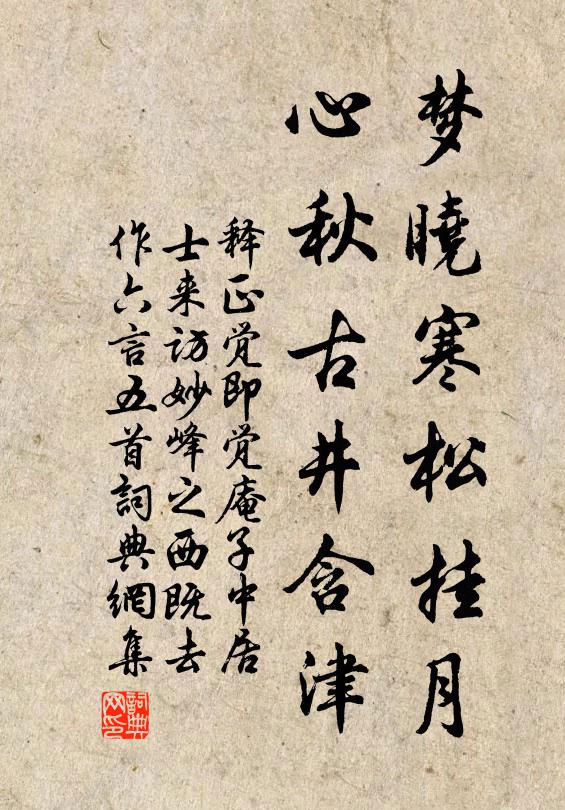 梦曉寒松挂月
心秋古井含津
释正觉即觉庵子中居
士来访妙峰之西既去
作六言五首詞典網集
詞典
网印